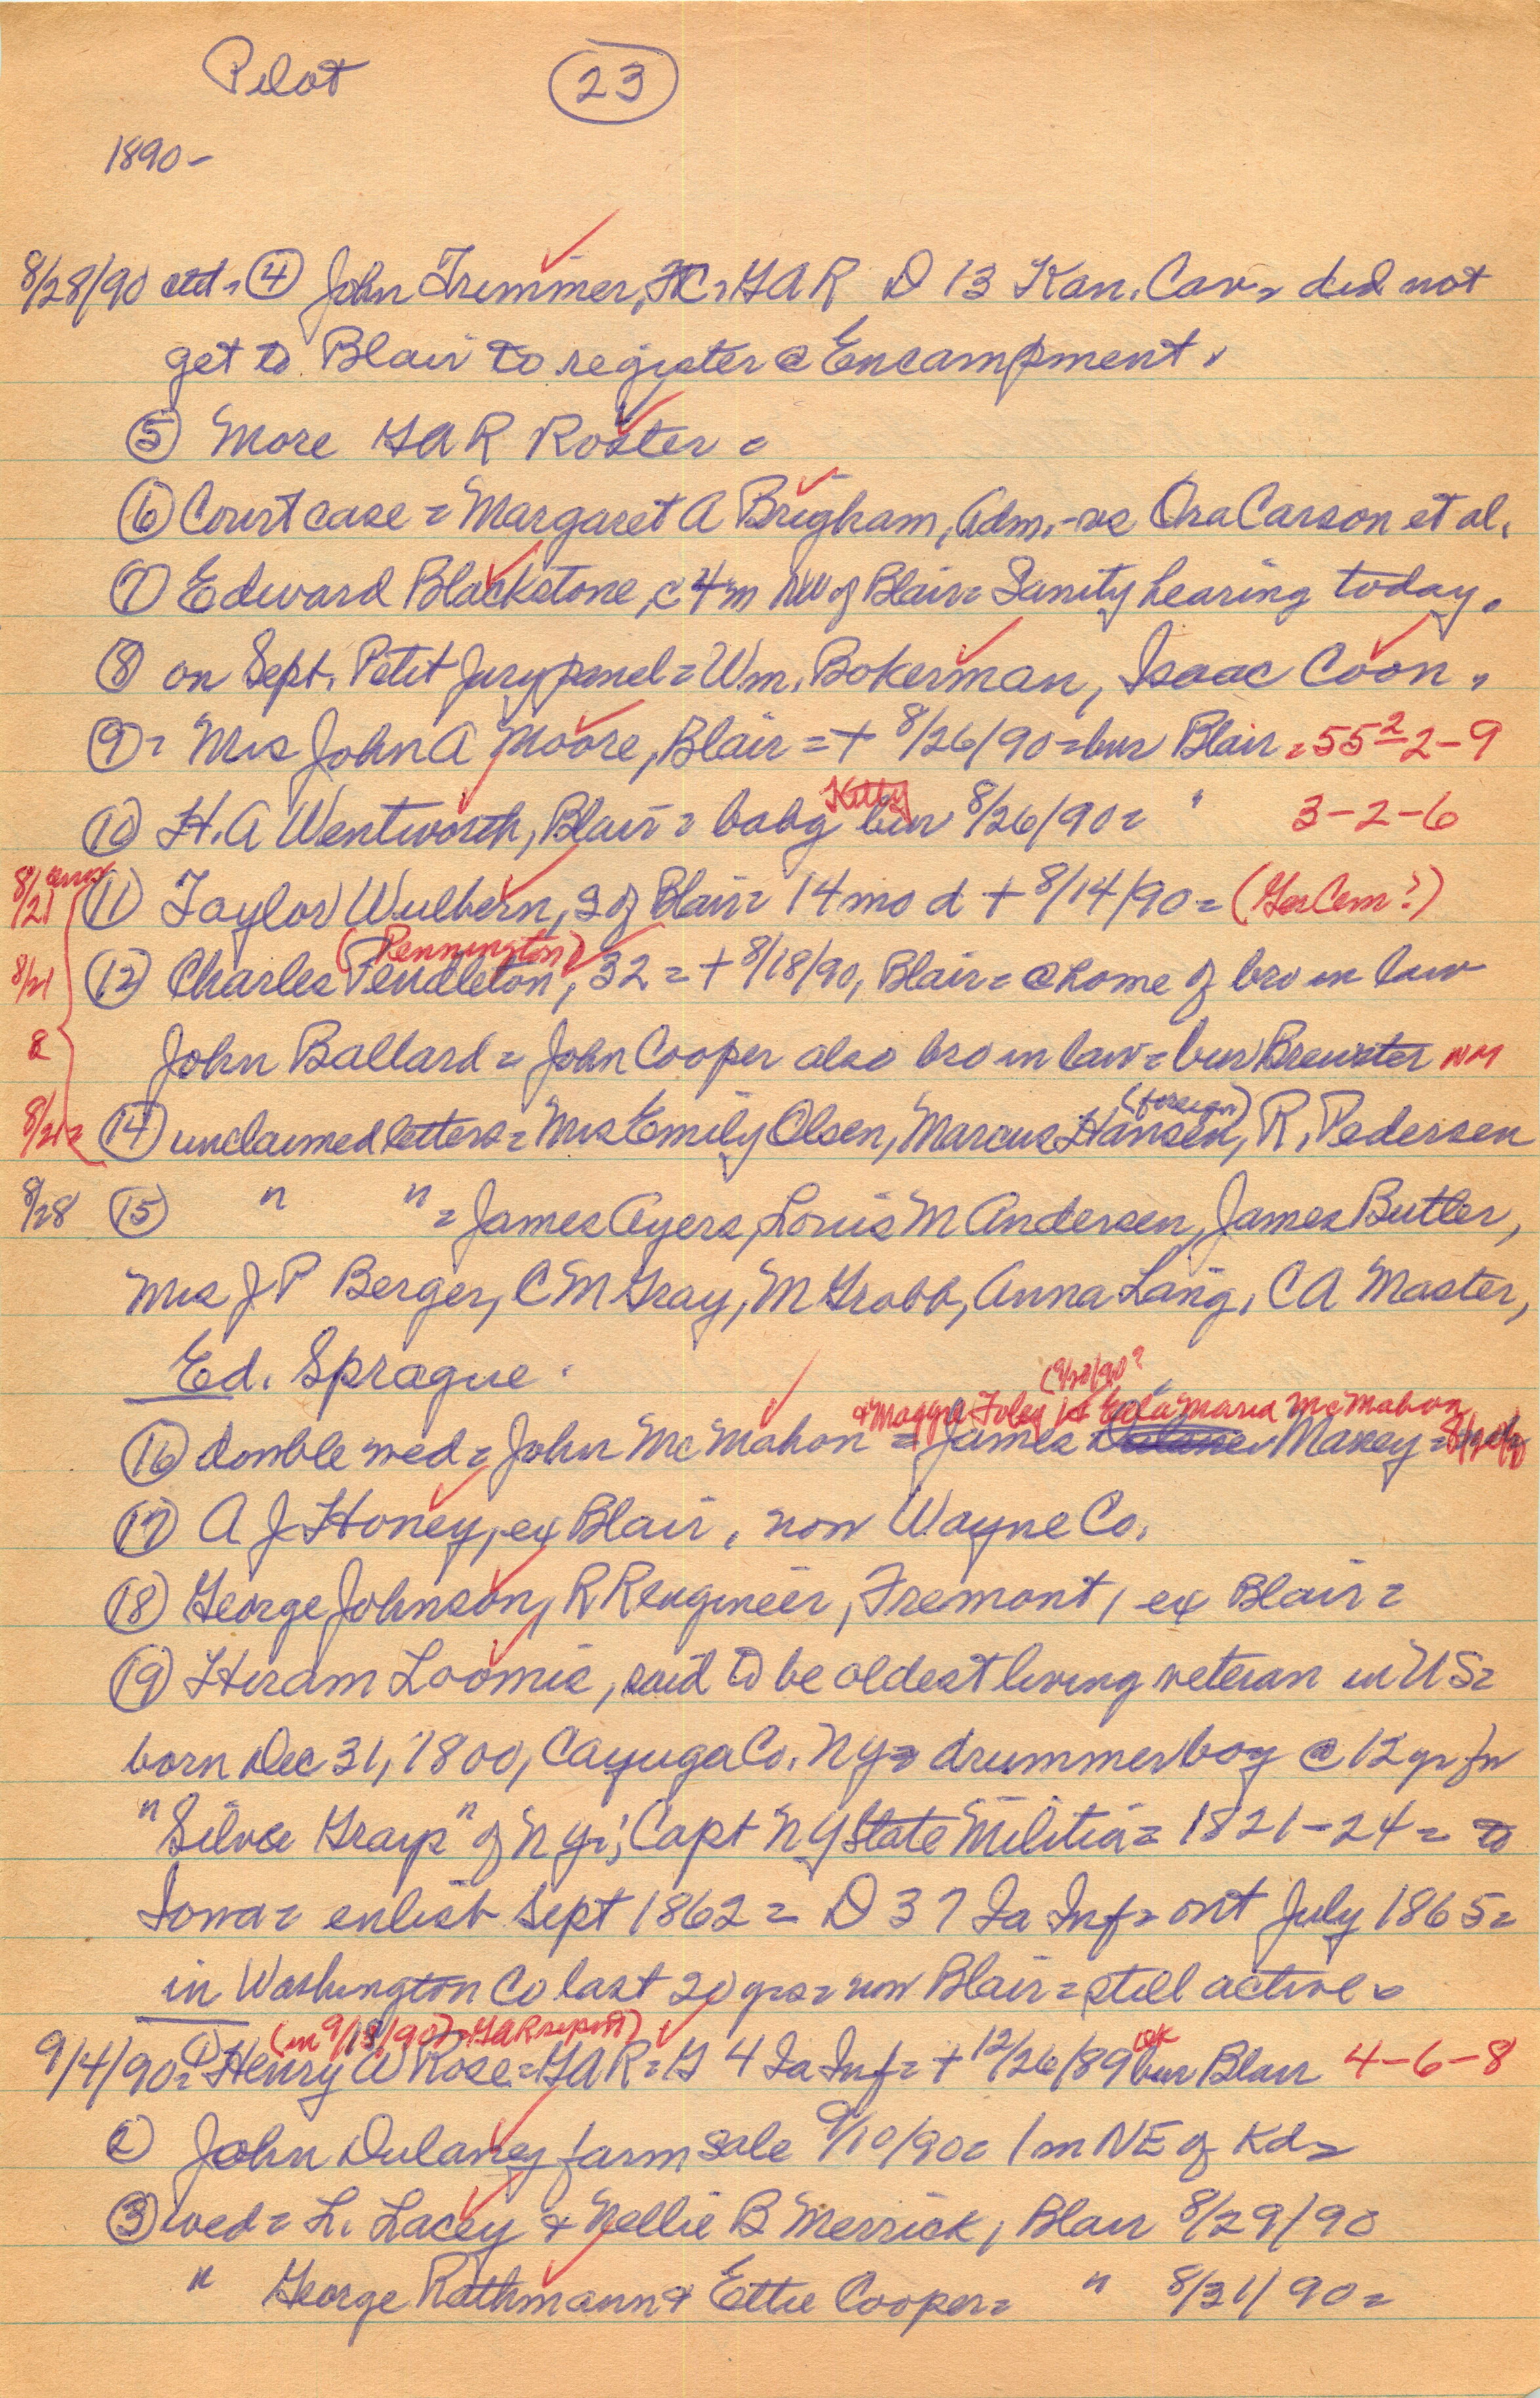 Pilot 23
1890-
8/28/90 ctd = 4 John Tremmer, FC = GAR D 13 Kan. Cav = did not
get to Blair to register @ Encampment.
5 More GAR Roster =
6 Court case = Margaret A Brigham, Adm. - vs Ora Carson et al.
7 Edward Blackstone, c 4 m NW of Blair = Sanity hearing today.
8 on Sept. Petit Jury panel = Wm. Bokerman, Isaac Coon.
9 = Mrs John A Moore, Blair = + 8/26/90 = bur Blair = 55 2 - 2 - 9
Kitty
10 H. A Wentworth, Blair = baby bur 8/26/90 = " 3-2-6
8/21 11 Taylor Wulbern, S of Blair = 14 mo d + 8/14/90 = (Ger Cem?)
(Pennington)
8/21 12 Charles Pendleton, 32 = + 8/18/90, Blair = @ home of bro in law
& John Ballard = John Cooper also bro in law = bur Brewster NM
(foreign)
8/21 = 14 unclaimed letters = Mrs Emily Olsen, Marcus Hansen, R. Pedersen
8/28 15 " " = James Ayers, Louis M Andersen, James Butler,
Mrs J P Berger, C M Gray, M Grobb, Anna Lang, C A Master,
Ed. Sprague.
(9/20/90?
& Maggie Foley Maria McMahon
16 double wed = John McMahon = James Maxey =
17 A J Honey, ex Blair, now Wayne Co.
18 George Johnson, RR engineer, Fremont, ex Blair =
19 Hiram Loomis, said to be oldest living veteran in US =
born Dec 31, 1800, Cayuga Co. NY = drummer boy @ 12 yr for
"Silver Grays" of NY; Capt NY State Militia = 1821-24 = to
Iowa = enlist Sept 1862 = D 37 Ia Inf = out July 1865 =
in Washington Co last 20 yrs = now Blair = still active =
(in 9/18/90 = GAR report) OK
9/4/90 = 1 Henry W Rose = GAR = G 4 Ia Inf = + 12/26/89 bur Blair 4-6-8
2 John Dulaney farm sale 9/10/90 = 1 m NE of Kd =
3 wed = L. Lacey & Nellie B Merrick, Blair 8/29/90
" George Rathmann & Ettie Cooper = " 8/31/90 =